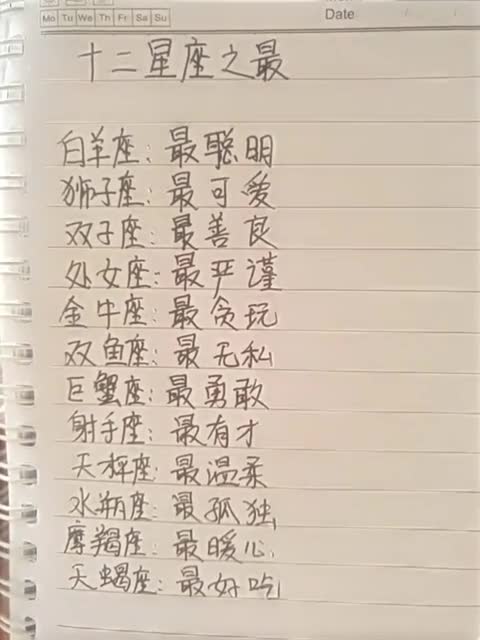 Mo Tu We Th Fr Sa Su
Date
十二星座之最
白羊座：最聪明
狮子座：最可爱
双子座：最善良
处女座：最严谨
金牛座：最贪玩
双鱼座：最无私
巨蟹座：最勇敢
射手座：最有才
天秤座：最温柔
水瓶座：最孤独
摩羯座：最暖心
天蝎座：最好吃